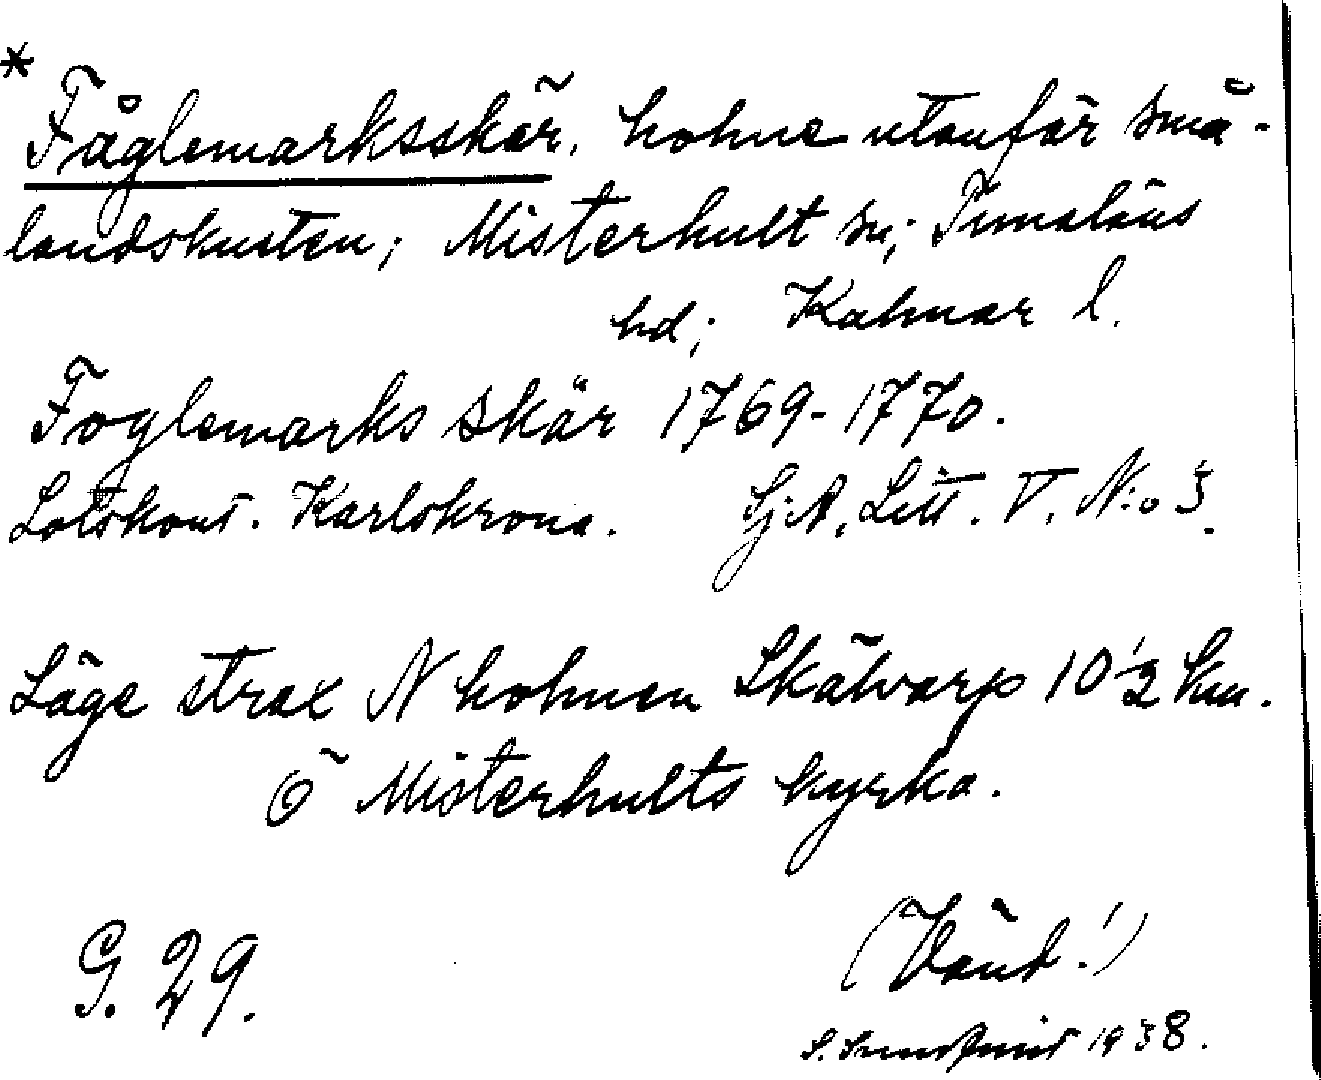 * Fåglemarksskär. holme utanför små-
landskusten; Misterhult sn; Tunaläns
hd; Kalmar l.
Foglemarks skär 1769-1770.
Lotskont. Karlskrona. Sj.A. Litt. V. N:o 3.
Läge strax N holmen Skälvarp 10 1/2 km.
Ö Misterhults kyrka.
G. 29. (Vänd!)
S. 1938.